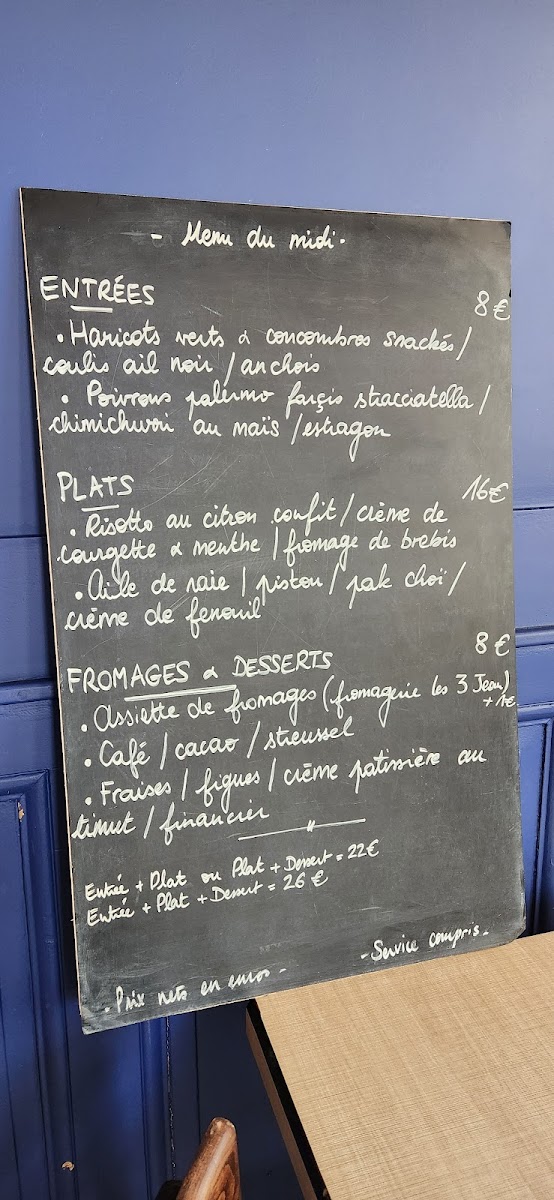 - Menu du midi -
ENTRÉES 8€
• Haricots verts & concombres snackés /
coulis ail noir / anchois
• Poivrons palermo farcis stracciatella /
chimichurri au maïs / estragon
PLATS 16€
• Risotto au citron confit / crème de
courgette & menthe / fromage de brebis
• Aile de raie / pistou / pak choï /
crème de fenouil
FROMAGES & DESSERTS 8€
• Assiette de fromages (fromagerie les 3 Jean)
+ 1€
• Café / cacao / streussel
• Fraises / figues / crème patissière au
timut / financier
Entrée + Plat ou Plat + Dessert = 22€
Entrée + Plat + Dessert = 26€
- Service compris -
- Prix nets en euros -